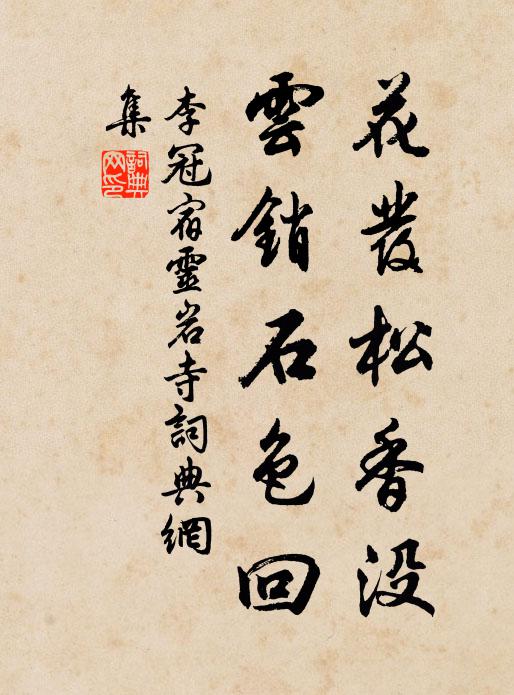 花發松香没
雲銷石色回
李冠宿靈岩寺詞典網
集
詞典網印